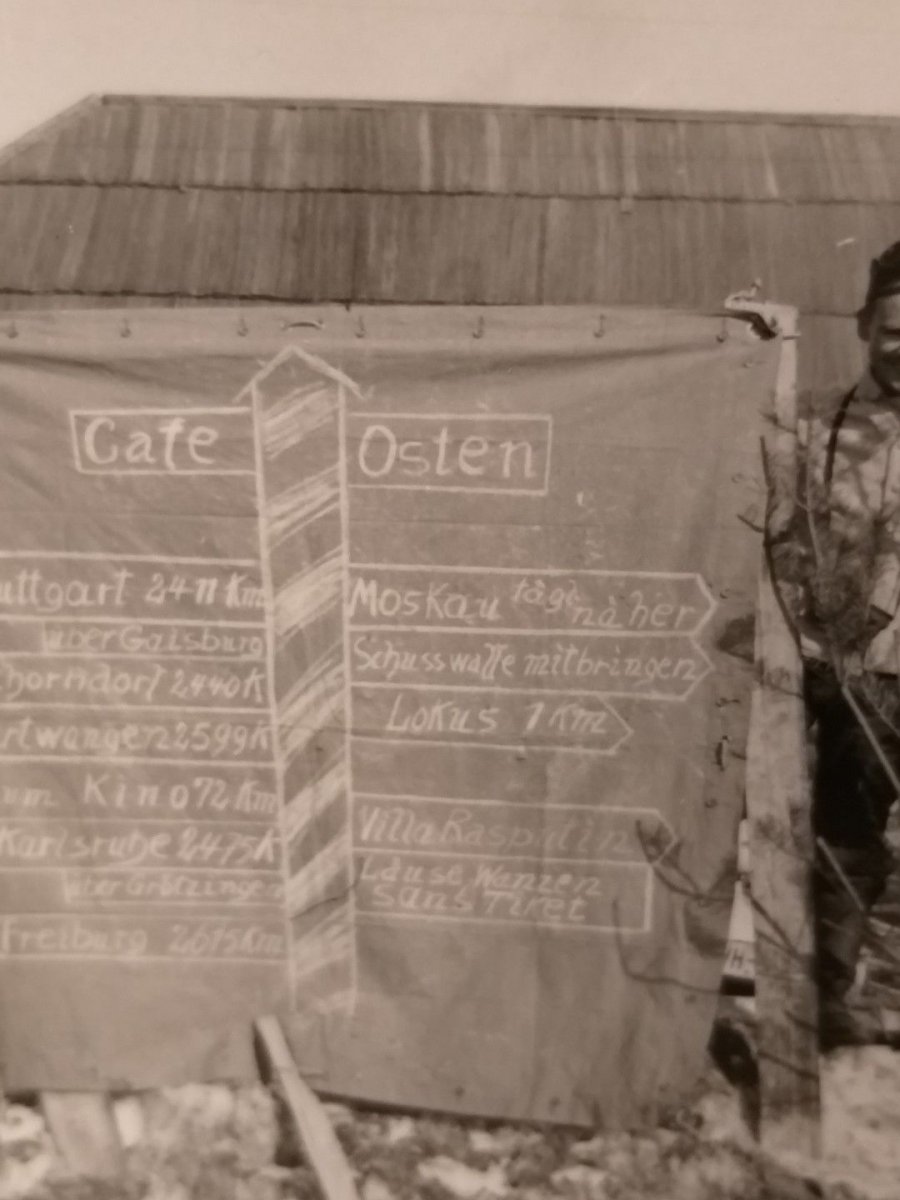 Cafe Osten
uttgart 2411 Km
über Gaisburg
horndorf 2440 K
rtwangen 2599 K
um Kino 72 Km
Karlsruhe 2475 K
über Grötzingen
Freiburg 2615 Km
Moskau tägl. näher
Schusswaffe mitbringen
Lokus 1 Km
Villa Rasputin
Läuse, Wanzen
sans Tiret
WH-